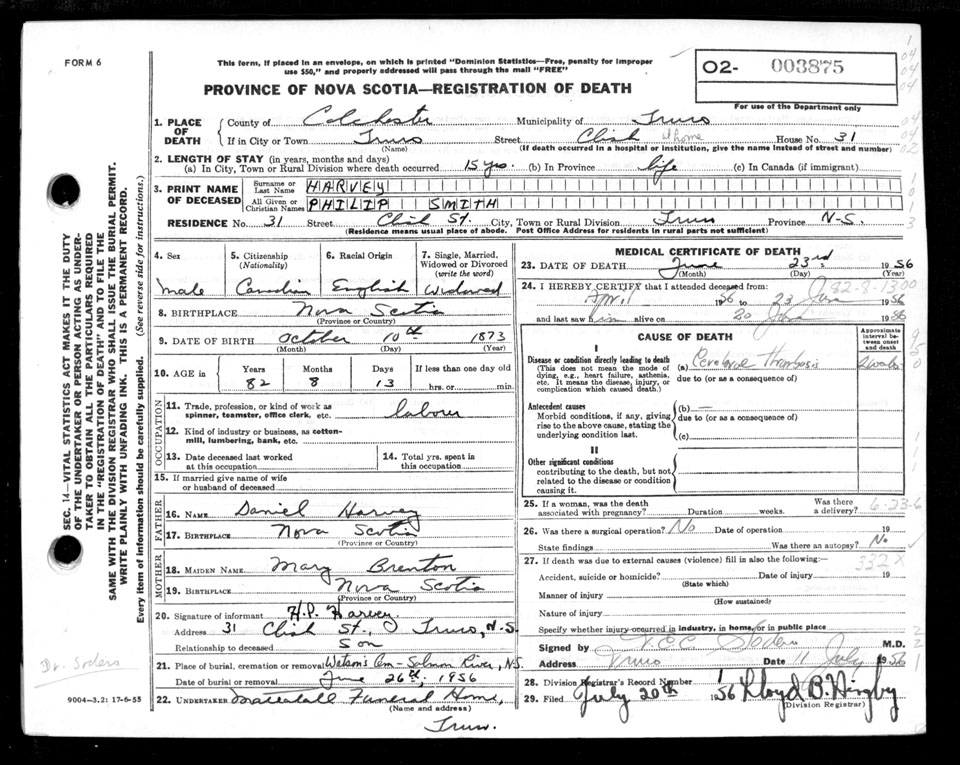 FORM 6
This form, if placed in an envelope, on which is printed "Dominion Statistics—Free, penalty for improper
use $50," and properly addressed will pass through the mail "FREE"
O2- 003875
For use of the Department only
PROVINCE OF NOVA SCOTIA—REGISTRATION OF DEATH
1. PLACE OF DEATH
County of Colchester Municipality of Truro
If in City or Town Truro Street Clish home House No. 31
(Name) (If death occurred in a hospital or institution, give the name instead of street and number)
2. LENGTH OF STAY (in years, months and days)
(a) In City, Town or Rural Division where death occurred 15 yrs. (b) In Province life (c) In Canada (if immigrant)
3. PRINT NAME OF DECEASED
Surname or Last Name HARVEY
All Given or Christian Names PHILIP SMITH
RESIDENCE No. 31 Street Clish St. City, Town or Rural Division Truro Province N-S.
(Residence means usual place of abode. Post Office Address for residents in rural parts not sufficient)
4. Sex
male
5. Citizenship
(Nationality)
Canadian
6. Racial Origin
English
7. Single, Married,
Widowed or Divorced
(write the word)
Widowed
8. BIRTHPLACE Nova Scotia
(Province or Country)
9. DATE OF BIRTH October 10th 1873
(Month) (Day) (Year)
10. AGE in
Years Months Days If less than one day old
82 8 13 hrs. or min.
OCCUPATION
11. Trade, profession, or kind of work as
spinner, teamster, office clerk, etc. labour
12. Kind of industry or business, as cotton-
mill, lumbering, bank, etc.
13. Date deceased last worked
at this occupation
14. Total yrs. spent in
this occupation
15. If married give name of wife
or husband of deceased
FATHER
16. NAME Daniel Harvey
17. BIRTHPLACE Nova Scotia
(Province or Country)
MOTHER
18. MAIDEN NAME Mary Brenton
19. BIRTHPLACE Nova Scotia
(Province or Country)
20. Signature of informant H.P. Harvey
Address 31 Clish St., Truro, N-S.
Relationship to deceased Son
21. Place of burial, cremation or removal Watson's Cem - Salmon River, N.S.
Date of burial or removal June 26th, 1956
22. UNDERTAKER Mattatall Funeral Home,
(Name and address)
Truro.
MEDICAL CERTIFICATE OF DEATH
23. DATE OF DEATH June 23rd 1956
(Month) (Day) (Year)
24. I HEREBY CERTIFY that I attended deceased from:
April 1956 to 23 June 1956
82-8-1300
and last saw him alive on 20 June 1956
CAUSE OF DEATH
Approximate
interval between
onset
and death
I
Disease or condition directly leading to death
(This does not mean the mode of
dying, e.g., heart failure, asthenia,
etc. It means the disease, injury, or
complication which caused death.)
(a) Cerebral Thrombosis 2 weeks
due to (or as a consequence of)
Antecedent causes
Morbid conditions, if any, giving
rise to the above cause, stating the
underlying condition last.
(b) —
due to (or as a consequence of)
(c)
II
Other significant conditions
contributing to the death, but not
related to the disease or condition
causing it.
25. If a woman, was the death
associated with pregnancy? Duration weeks. Was there
a delivery?
6-23-6
26. Was there a surgical operation? No Date of operation 19
State findings Was there an autopsy? No
27. If death was due to external causes (violence) fill in also the following:—
332X
Accident, suicide or homicide? Date of injury 19
(State which)
Manner of injury
(How sustained)
Nature of injury
Specify whether injury occurred in industry, in home, or in public place
Signed by T.E.C. Soders M.D.
Address Truro Date 11 July 1956
28. Division Registrar's Record Number
29. Filed July 20th 1956 Lloyd B. Higby
(Division Registrar)
SEC. 14—VITAL STATISTICS ACT MAKES IT THE DUTY
OF THE UNDERTAKER OR PERSON ACTING AS UNDER-
TAKER TO OBTAIN ALL THE PARTICULARS REQUIRED
IN THE "REGISTRATION OF DEATH" AND TO FILE THE
SAME WITH THE DIVISION REGISTRAR WHO SHALL ISSUE THE BURIAL PERMIT.
WRITE PLAINLY WITH UNFADING INK. THIS IS A PERMANENT RECORD.
Every item of information should be carefully supplied. (See reverse side for instructions.)
Dr. Soders
9004—3.2: 17-6-55